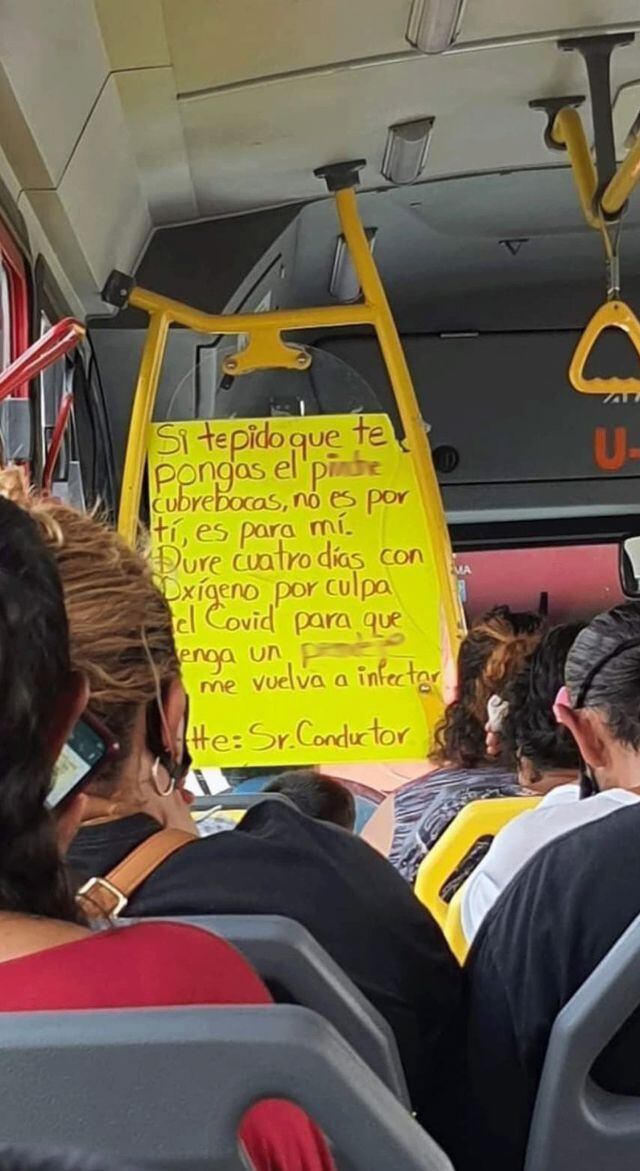 Si te pido que te
pongas el
cubrebocas, no es por
tí, es para mí.
Dure cuatro días con
Oxígeno por culpa
el Covid para que
enga un
me vuelva a infectar
tte: Sr. Conductor
U-